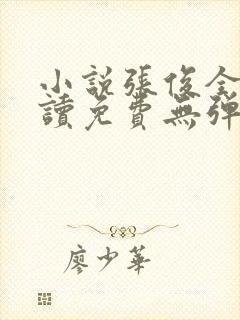 小説張俊全
讀免費無彈
廖少華